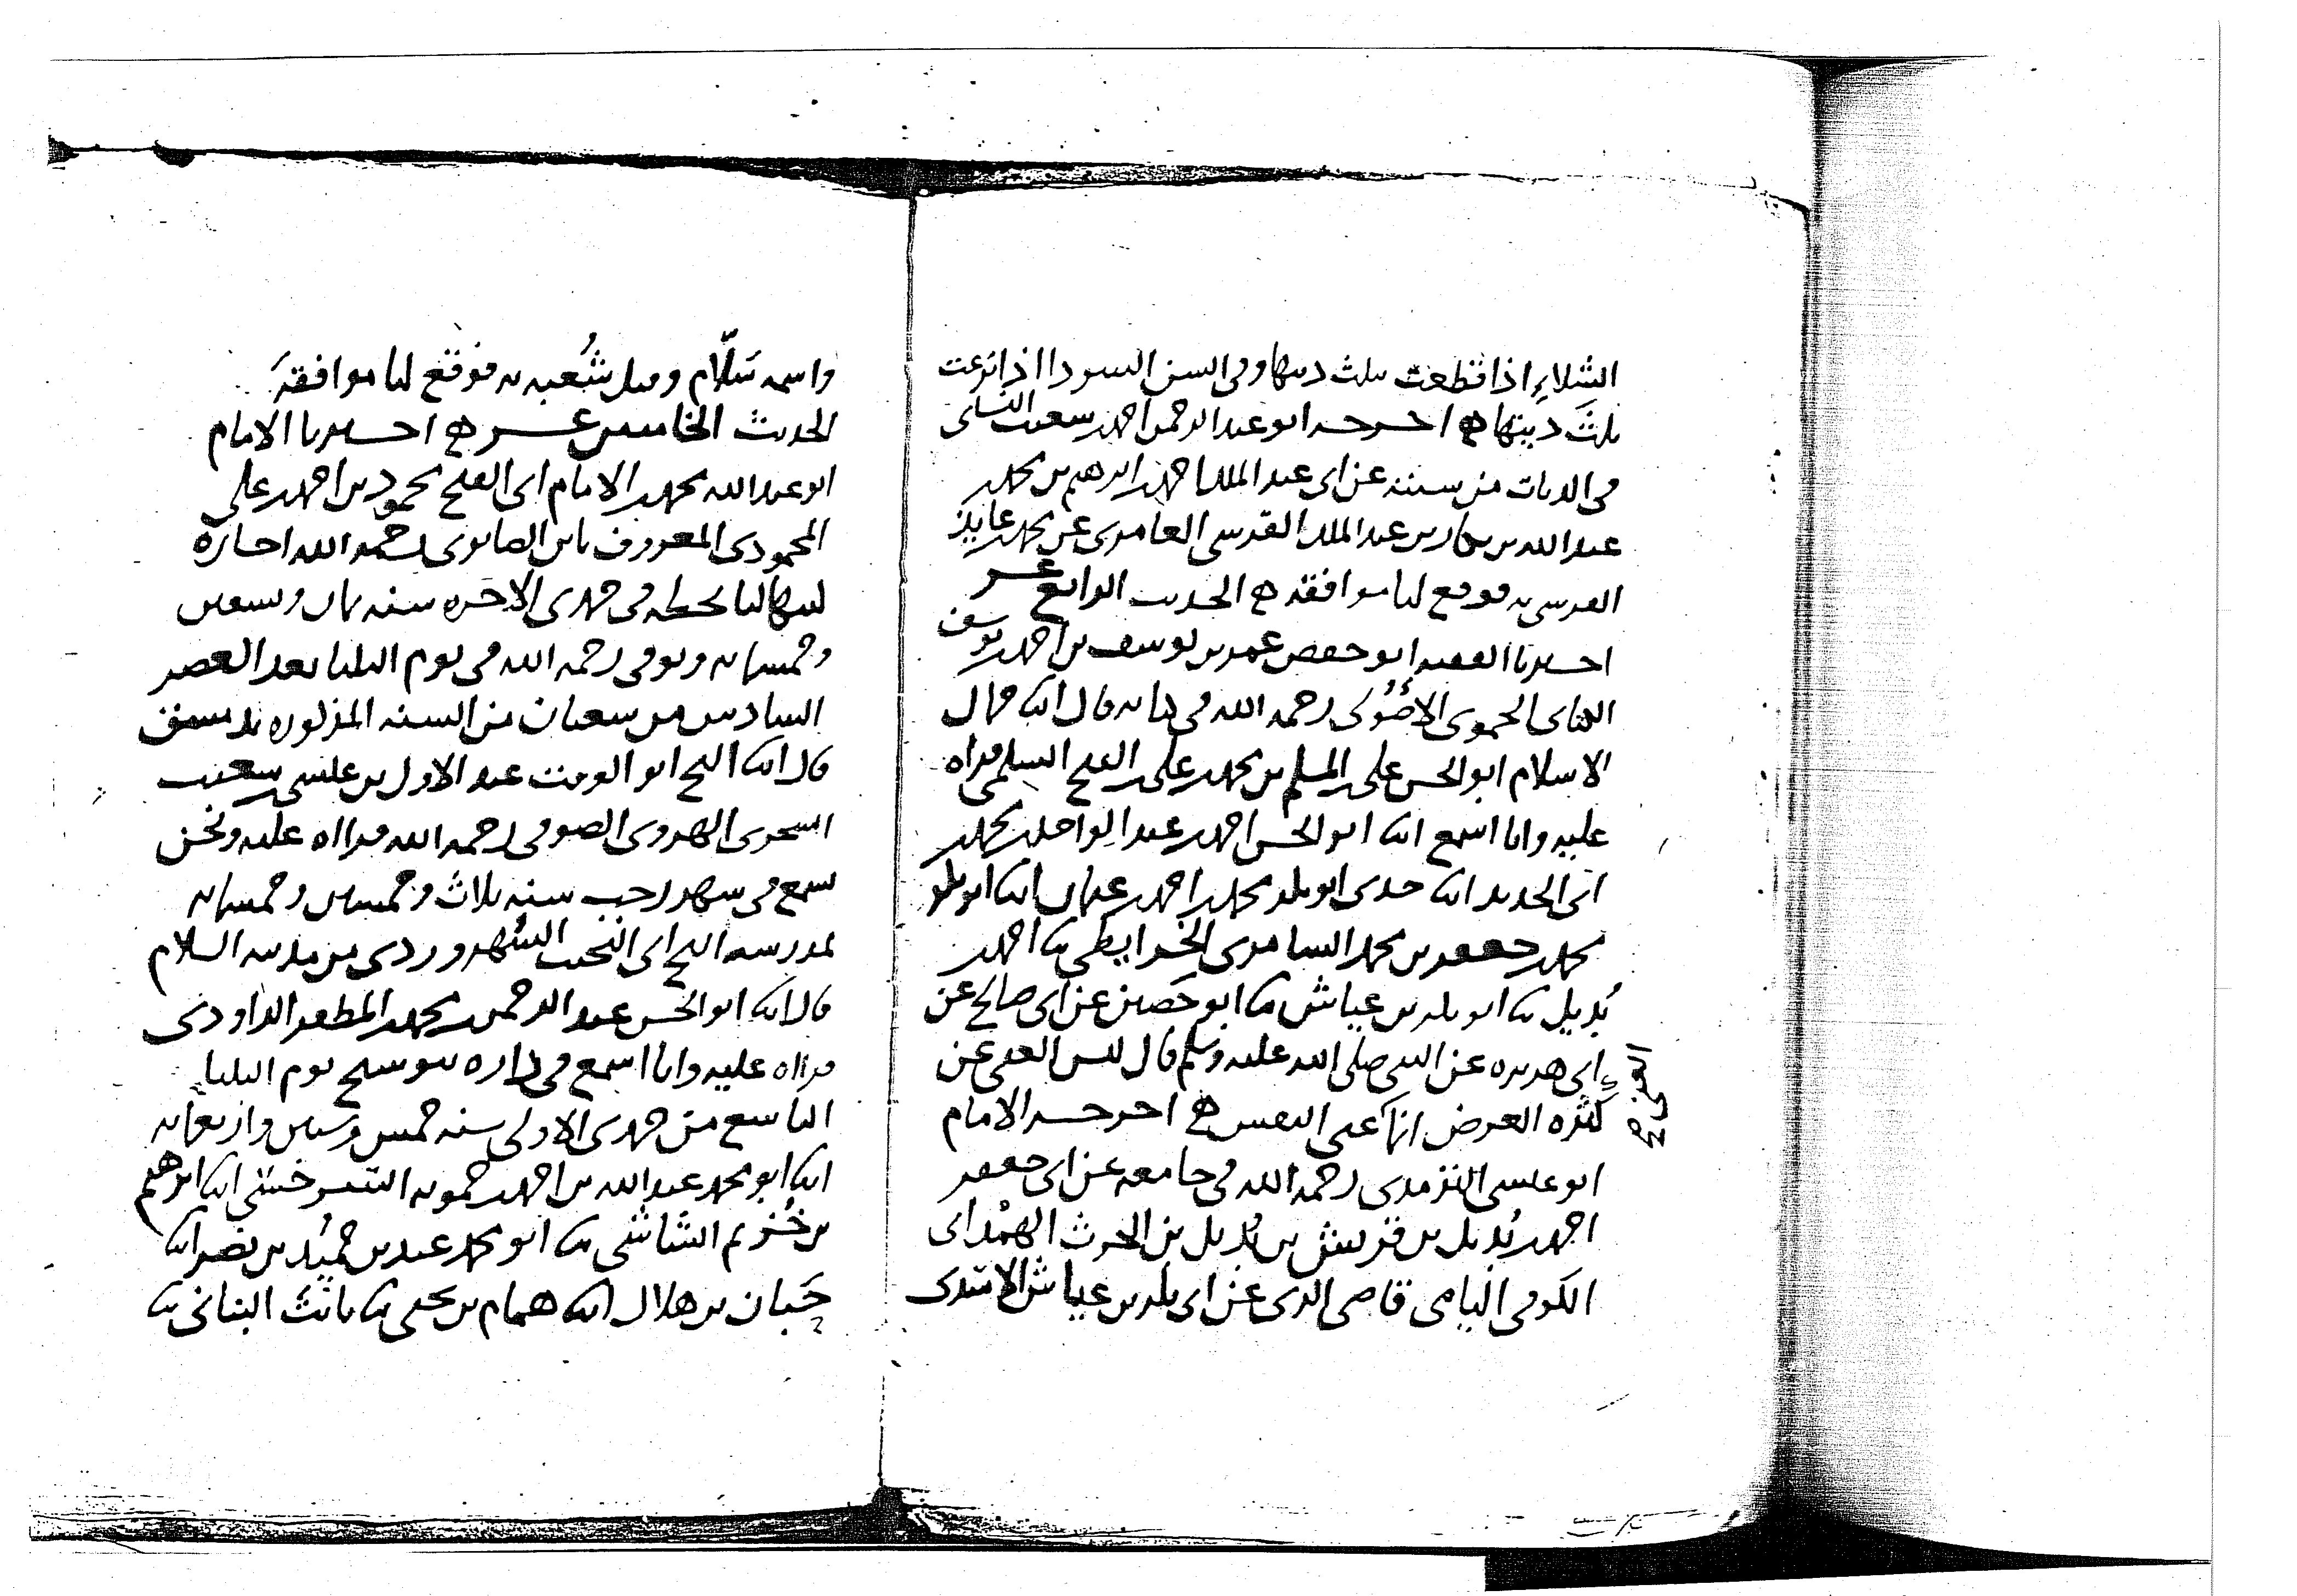 الشلاء اذا قطعت بثلث ديتها وفى السن السودا اذا نزعت
بثلث ديتها ه اخرجه ابو عبد الرحمن احمد بن شعيب النسائى
فى الديات من سننه عن ابى عبد الملك احمد بن ابرهيم بن محمد
عبد الله بن بكار بن عبد الملك القرشى العامرى عن محمد بن عايذ
القرشى به فوقع لنا موافقة ه الحديث الرابع عشر
اخبرنا الفقيه ابو حفص عمر بن يوسف بن احمد بن يوسف
الحموى رحمه الله فى كتابه قال انبا جمال
الاسلام ابو الحسن على بن المسلم بن محمد بن على بن الفتح السلمى قراه
عليه وانا اسمع انبا ابو الحسن احمد بن عبد الواحد بن محمد
ابى الحديد انبا جدى ابو بكر محمد بن احمد بن عثمان انبا ابو بكر
محمد بن جعفر بن محمد السامرى الخرايطى ثنا احمد
بُديل ثنا ابو بكر بن عياش ثنا ابو حَصين عن ابى صالح عن
ابى هريره عن النبى صلى الله عليه وسلم قال ليس الغنى عن
كثره العرض انما غنى النفس ه اخرجه الامام
الغنى صح
ابو عيسى الترمذى رحمه الله فى جامعه عن ابى جعفر
احمد بن بُديل بن قريش بن بُديل بن الحرث الهمْدانى
الكوفى اليامى قاضى الرى عن ابى بكر بن عياش الاسدى
واسمه سَلّام وقيل شُعبه به فوقع لنا موافقةً
الحديث الخامس عشر ه اخبرنا الامام
ابو عبد الله محمد بن الامام ابى الفتح محمود بن احمد بن على
المحمودى المعروف بابن الصابونى رحمه الله اجازة
كتبها لنا بخطه فى جمدى الاخره سنه ثمان وتسعين
وخمسمايه وتوفى رحمه الله فى يوم الثلثا بعد العصر
السادس من شعبان من السنه المذكوره بدمشق
قال انبا الشيخ ابو الوقت عبد الاول بن عيسى بن شعيب
السجزى الهروى الصوفى رحمه الله قراه عليه ونحن
نسمع فى شهر رجب سنه ثلاث وخمسين وخمسمايه
بمدرسه الشيخ ابى النجيب السُهروردى من مدينه السلام
قال انبا ابو الحسن عبد الرحمن بن محمد بن المظفر الداودى
قراه عليه وانا اسمع فى داره ببوسنج يوم الثلثا
التاسع من جمدى الاولى سنه خمس وستين واربعمايه
انبا ابو محمد عبد الله بن احمد بن حمويه السرخسى انبا ابرهيم
بن خُزيم الشاشى ثنا ابو محمد عبد بن حُميد بن نصر انبا
حَبان بن هلال انبا همام بن يحيى ثنا ثابت البنانى ثنا